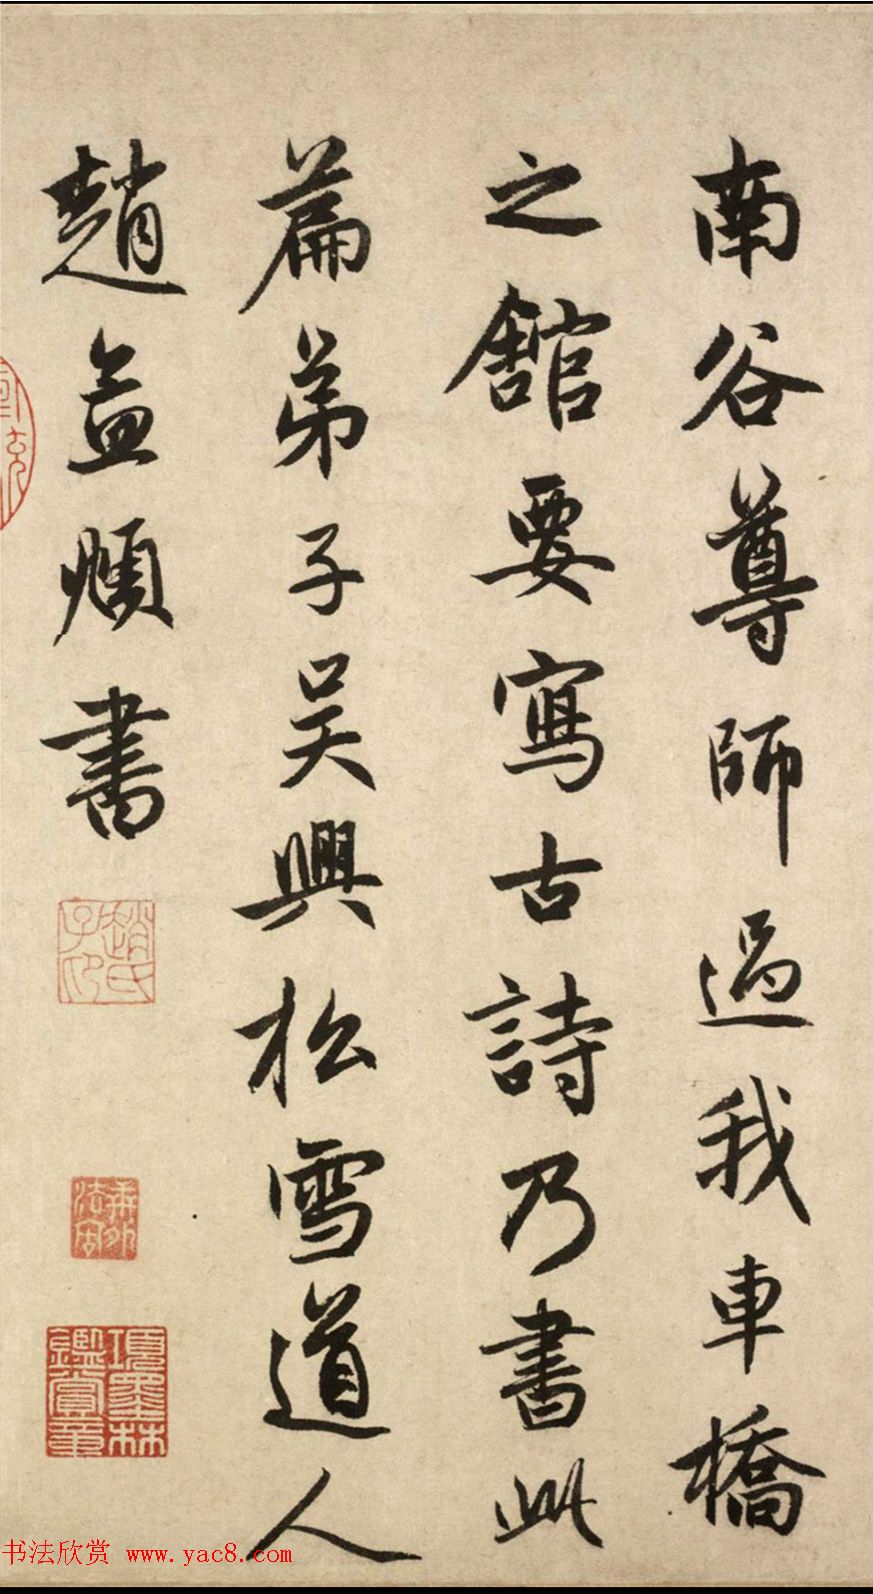 南谷尊師過我車橋
之舘要寫古詩乃書此
篇弟子吴興松雪道人
趙孟頫書
趙氏子印
項墨林鑑賞章
书法欣赏 www.yac8.com